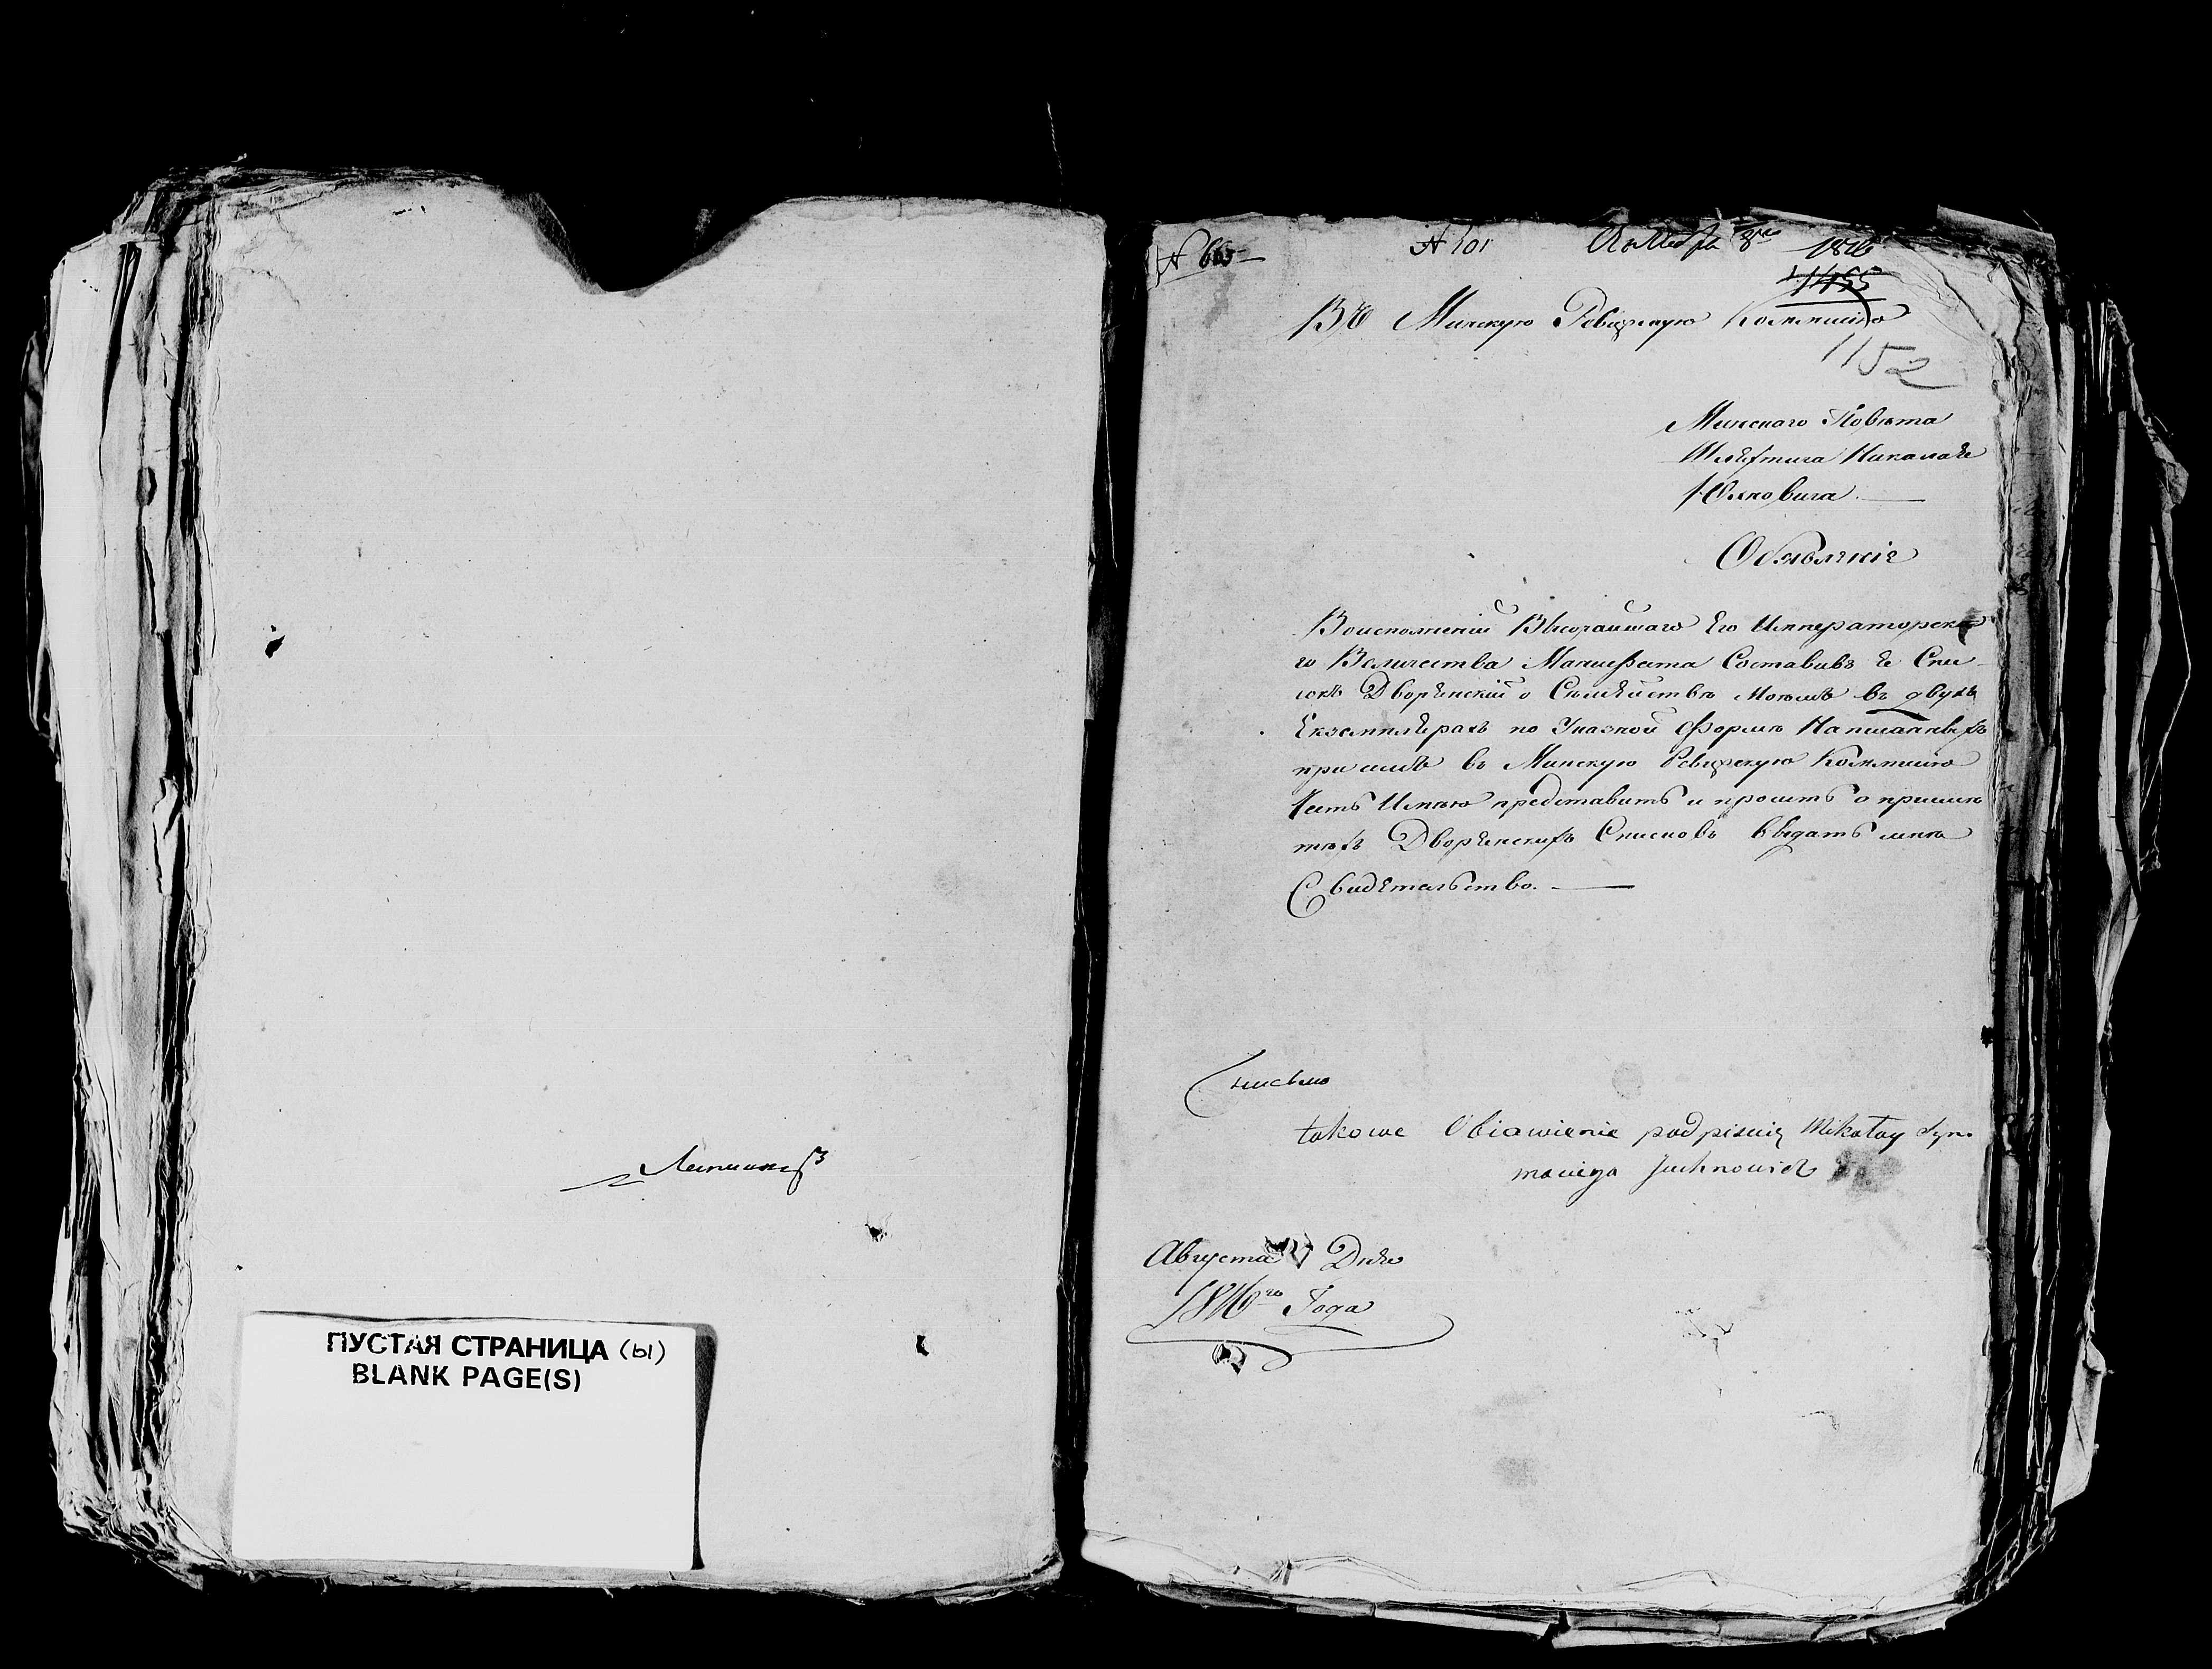 ПУСТАЯ СТРАНИЦА (ы)
BLANK PAGE(S)
№ 665
№ 101 Октября 8го 1816
1455
Въ Минскую Ревизскую Коммисію
1152
Минского Повѣта
Шляхтича Николая
Юхновича
Объявленіе
Воисполненіи Высочайшаго Его Императорска
го Величества Манифеста Составивъ я Спи
сокъ Дворянскій о Сѣмѣйствѣ Моемъ въ двухъ
Екземплярахъ по Указной Формѣ Написанныхъ
при семъ въ Минскую Ревизскую Коммисію
Честь Имѣю представить и просить о приемѣ
тѣхъ Дворянскихъ Списковъ выдать мнѣ
Свидетельство.
takowe Obiawienie podpisuię Mikołay Szy
mowicza Juchnowicz
Августа Дня
1816го Года